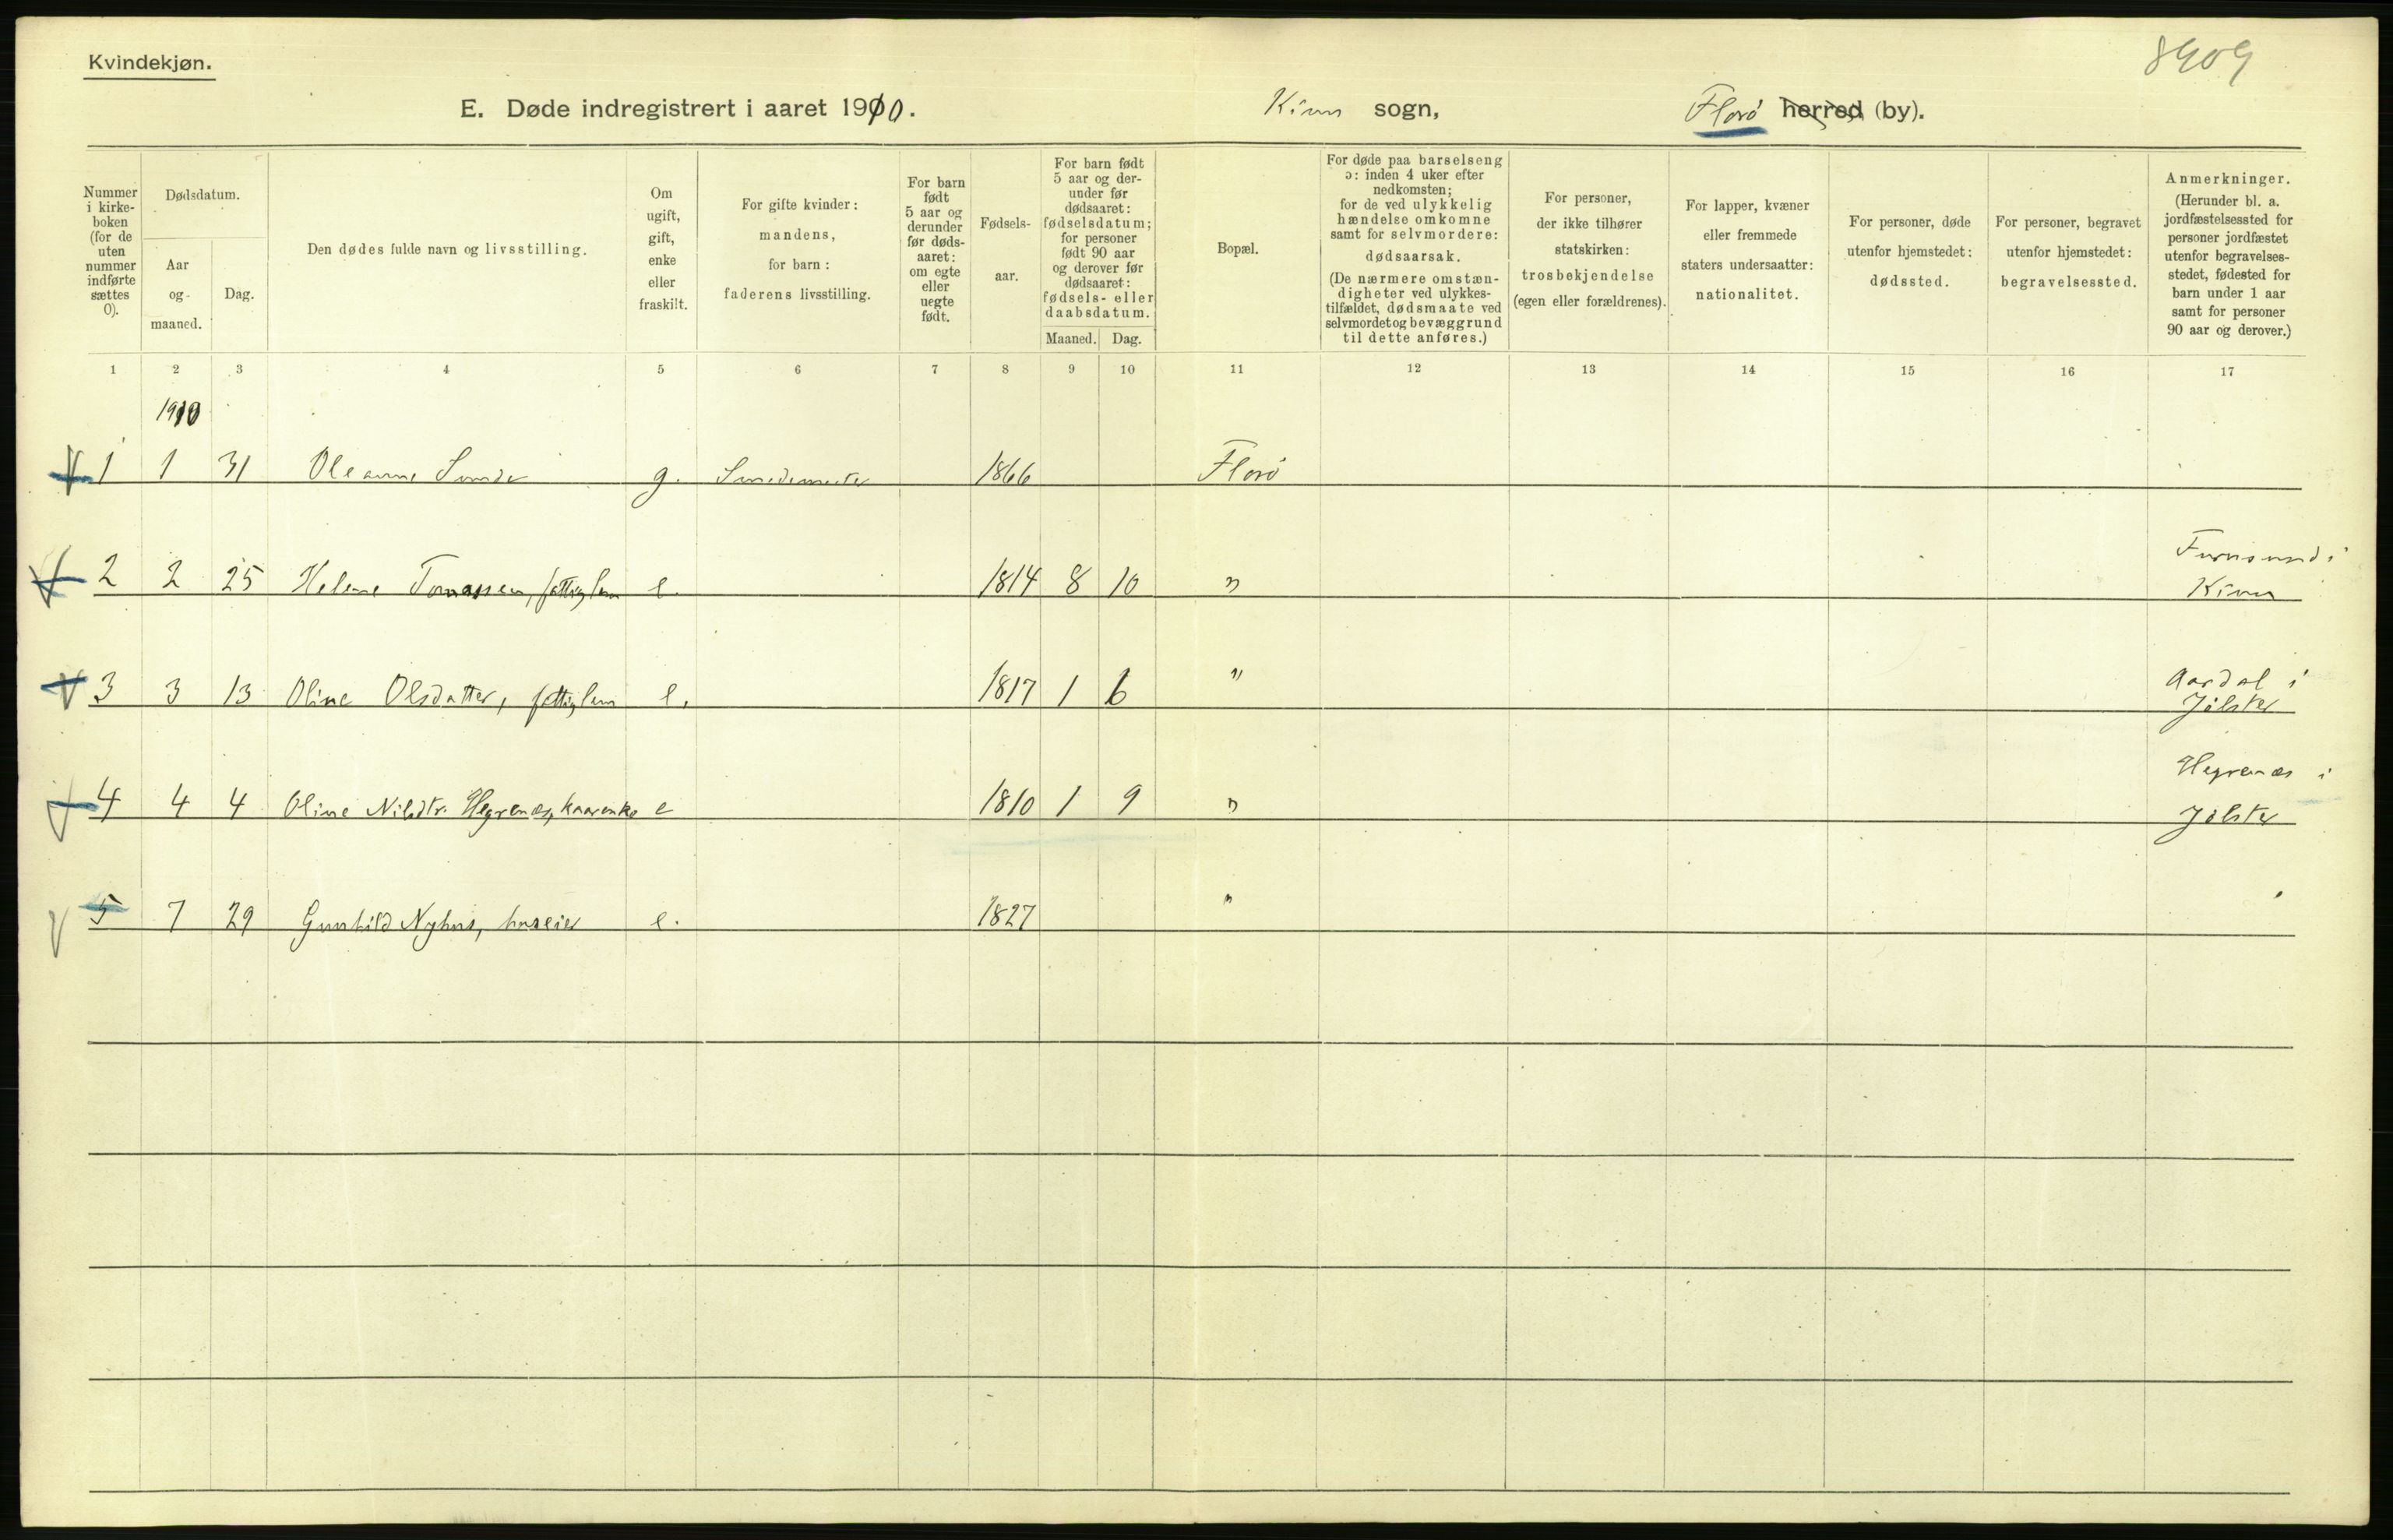 Kvindekjøn.
8909
E. Døde indregistrert i aaret 1910.
Kinn sogn,
Florø herred (by).
Nummer i kirke-boken (for de uten nummer indførte sættes 0).
Dødsdatum.
Aar og maaned.
Dag.
Den dødes fulde navn og livsstilling.
Om ugift, gift, enke eller fraskilt.
For gifte kvinder: mandens, for barn: faderens livsstilling.
For barn født 5 aar og derunder før døds-aaret: om egte eller uegte født.
Fødsels-aar.
For barn født 5 aar og der-under før dødsaaret: fødselsdatum; for personer født 90 aar og derover før dødsaaret: fødsels- eller daabsdatum.
Maaned. Dag.
Bopæl.
For døde paa barselseng ɔ: inden 4 uker efter nedkomsten; for de ved ulykkelig hændelse omkomne samt for selvmordere: dødsaarsak. (De nærmere omstæn-digheter ved ulykkes-tilfældet, dødsmaate ved selvmordet og bevæggrund til dette anføres.)
For personer, der ikke tilhører statskirken: trosbekjendelse (egen eller forældrenes).
For lapper, kvæner eller fremmede staters undersaatter: nationalitet.
For personer, døde utenfor hjemstedet: dødssted.
For personer, begravet utenfor hjemstedet: begravelsessted.
Anmerkninger. (Herunder bl. a. jordfæstelsessted for personer jordfæstet utenfor begravelses-stedet, fødested for barn under 1 aar samt for personer 90 aar og derover.)
1 2 3 4 5 6 7 8 9 10 11 12 13 14 15 16 17
1910
1 1 31 Oleanne Sunde g. Smedemester 1866 Florø
2 2 25 Helene Tomassen, fattiglem e. 1814 8 10 " Furusund i Kinn
3 3 13 Oline Olsdatter, fattiglem e. 1817 1 6 " Aardal i Jølster
4 4 4 Oline Nilsdtr. Hegrenæs, kaarenke e 1810 1 9 " Hegrenæs i Jølster
5 7 29 Gunhild Nyhus, huseier e. 1827 "